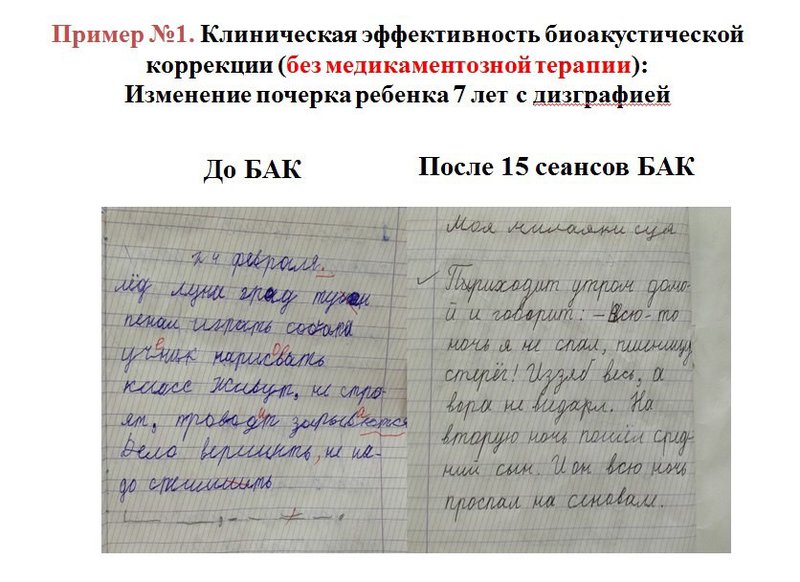 Пример №1. Клиническая эффективность биоакустической
коррекции (без медикаментозной терапии):
Изменение почерка ребенка 7 лет с дизграфией
До БАК
После 15 сеансов БАК
24 февраля.
лёд луна град
пенал играть собака
ученик нарисовать
класс Живут, не стро-
ят, проводит зарываются
Дело вершить, не на-
до
Моя милаяни сца
Пыриходит утром домо-
й и говорит: – Всю-то
ночь я не спал, пшеницу
стерёг! Иззяб весь, а
вора не видарл. На
вторую ночь пошёл сред-
ний сын. И он всю ночь
проспал на сеновам.